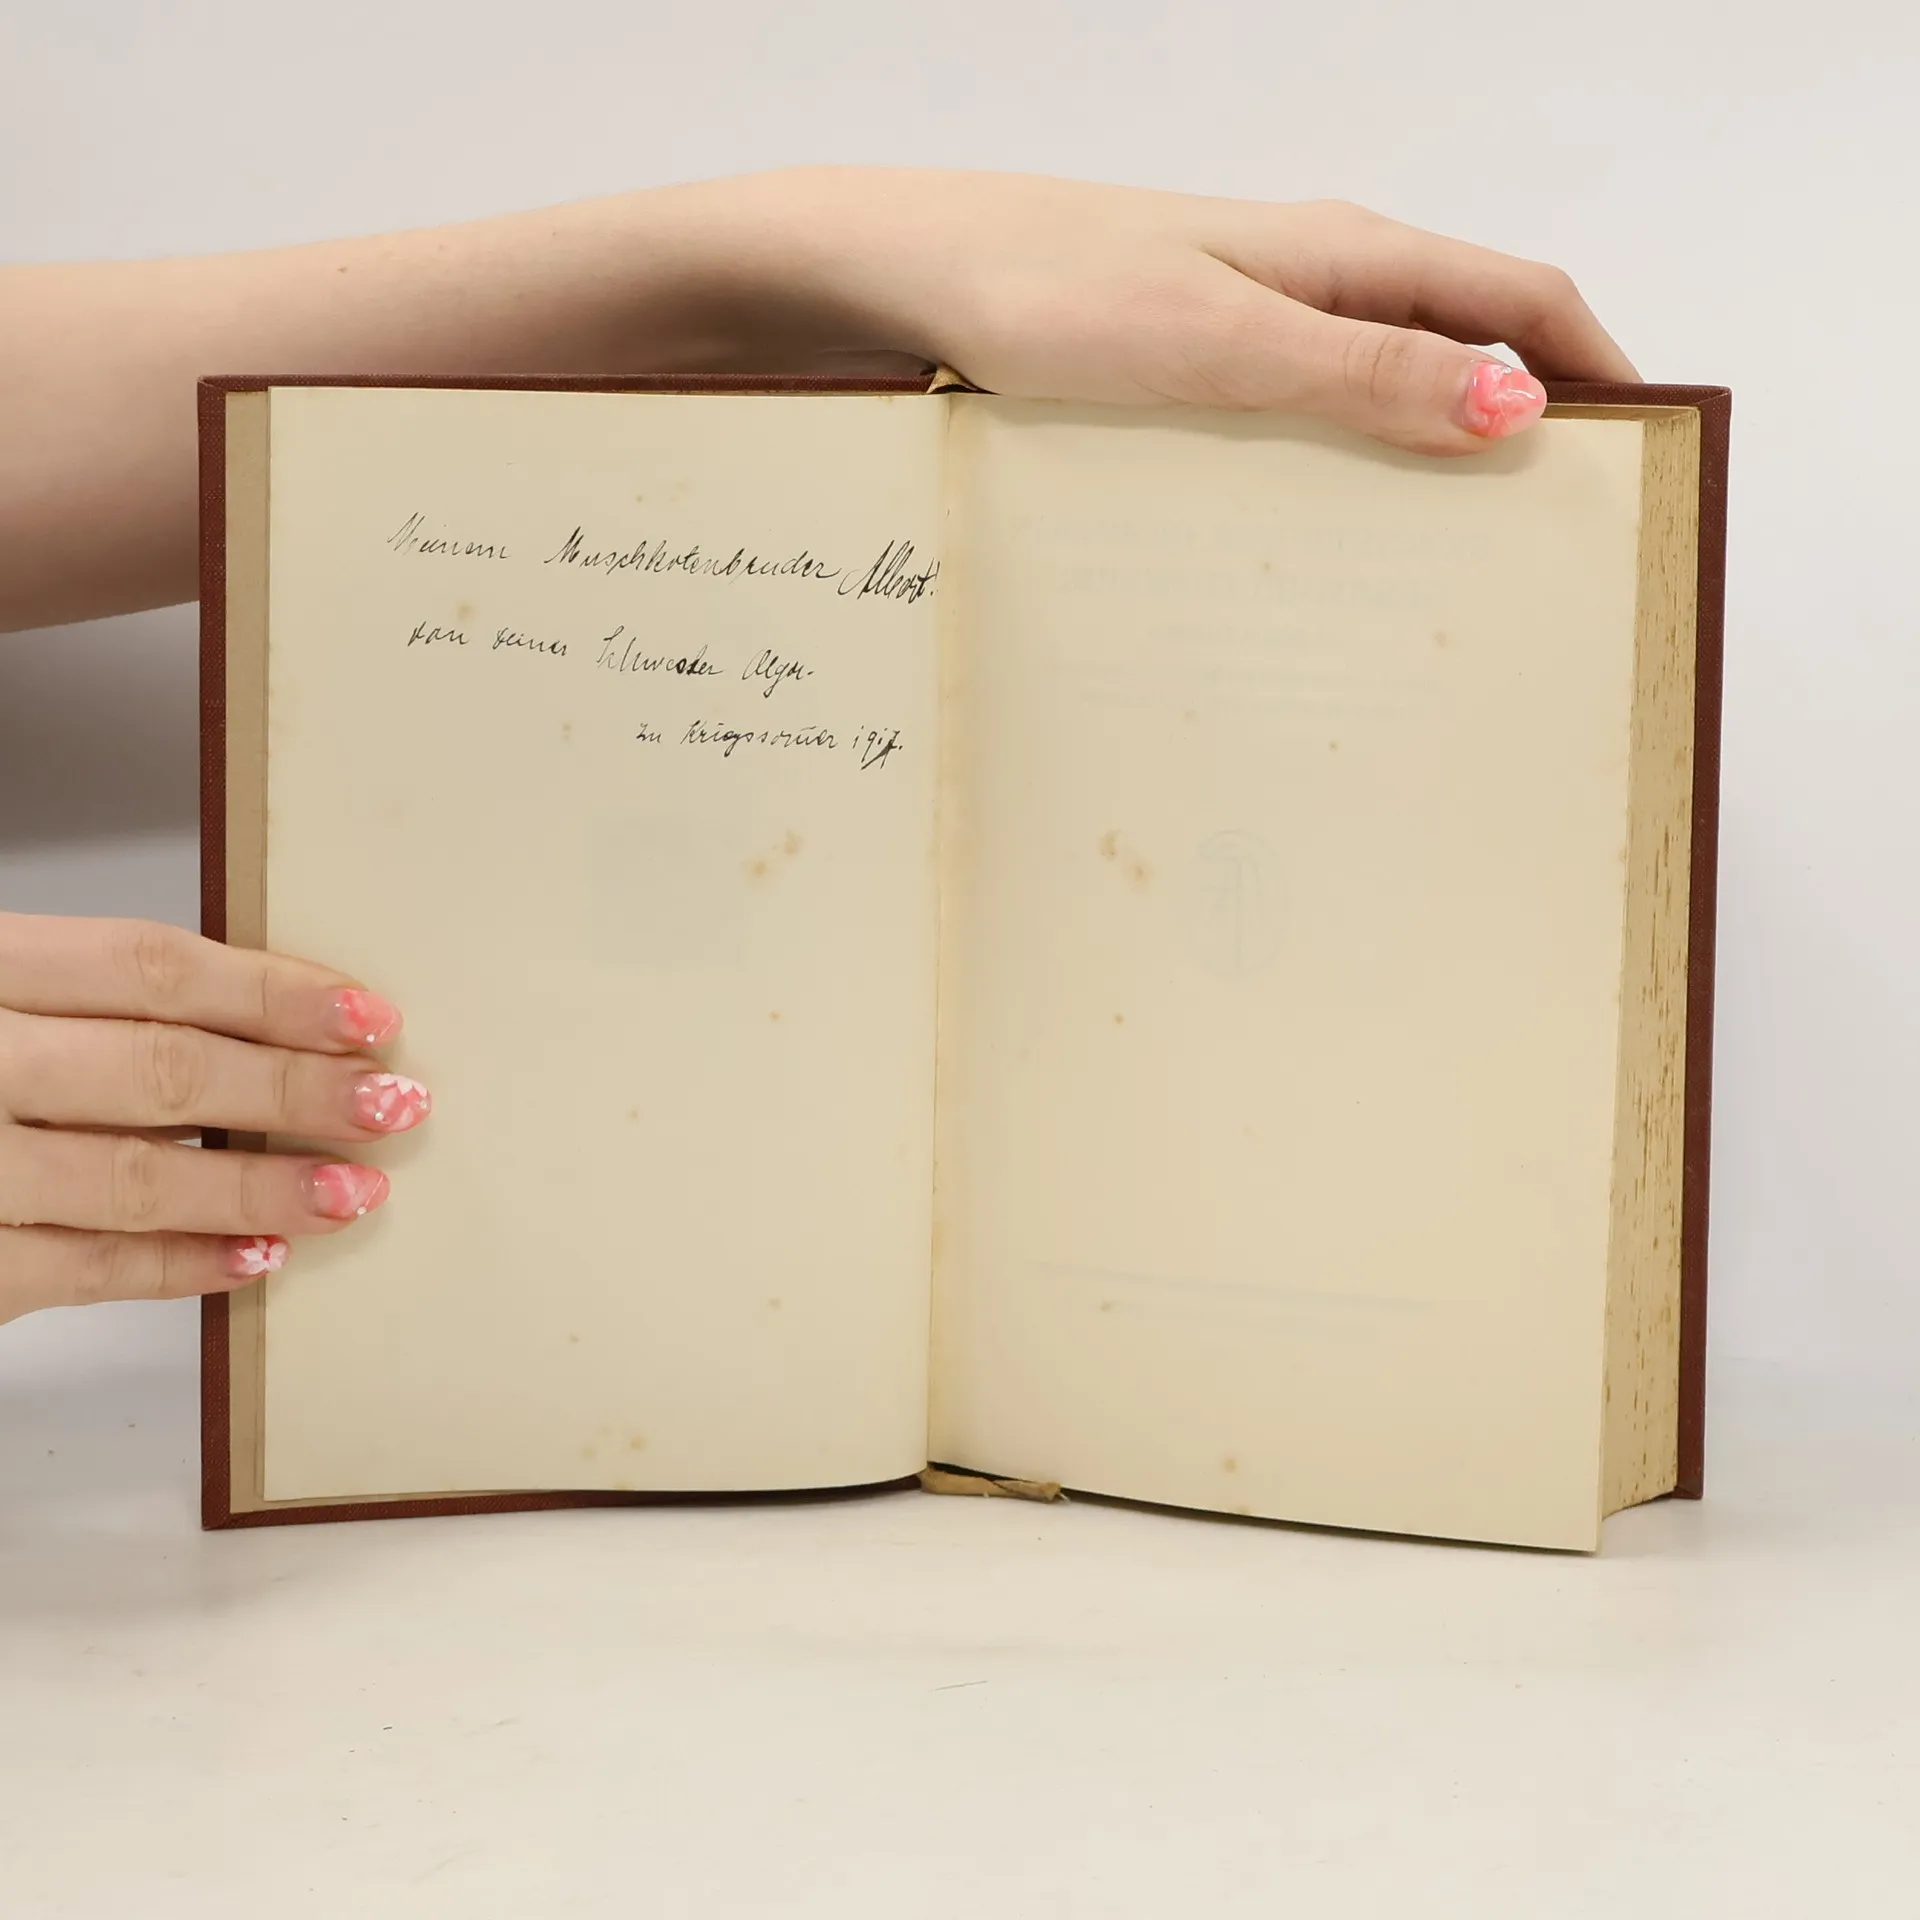 Meinem Muschkotenbruder Albert!
von seiner Schwester Olga.
Im Kriegssom̅er 1917.